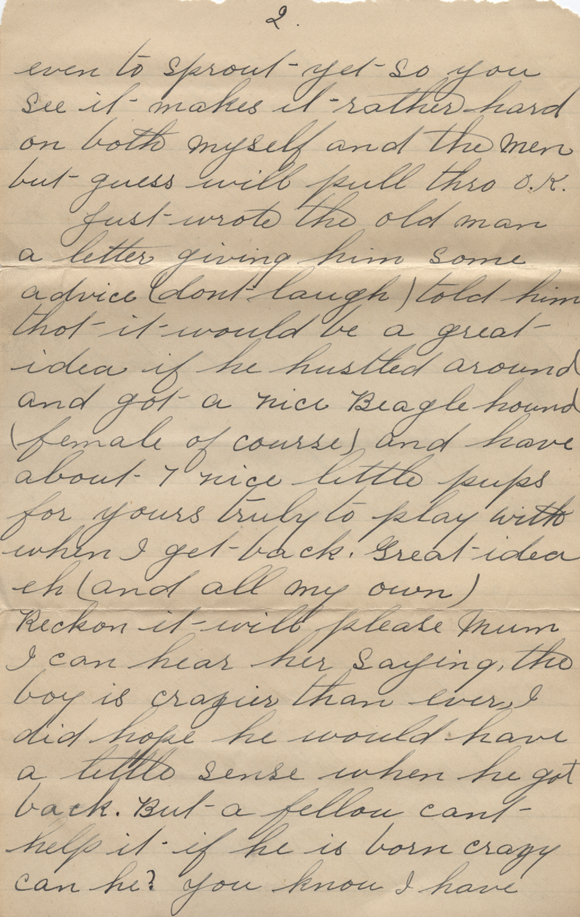 2.
even to sprout yet so you
see it makes it rather hard
on both myself and the men
but guess will pull thro O.K.
Just wrote the old man
a letter giving him some
advice (dont laugh) told him
thot it would be a great
idea if he hustled around
and got a nice Beagle hound
(female of course) and have
about 7 nice little pups
for yours truly to play with
when I get back. Great idea
eh (and all my own)
Reckon it will please Mum
I can hear her saying, the
boy is crazier than ever, I
did hope he would have
a little sense when he got
back. But a fellow cant
help it if he is born crazy
can he? you know I have